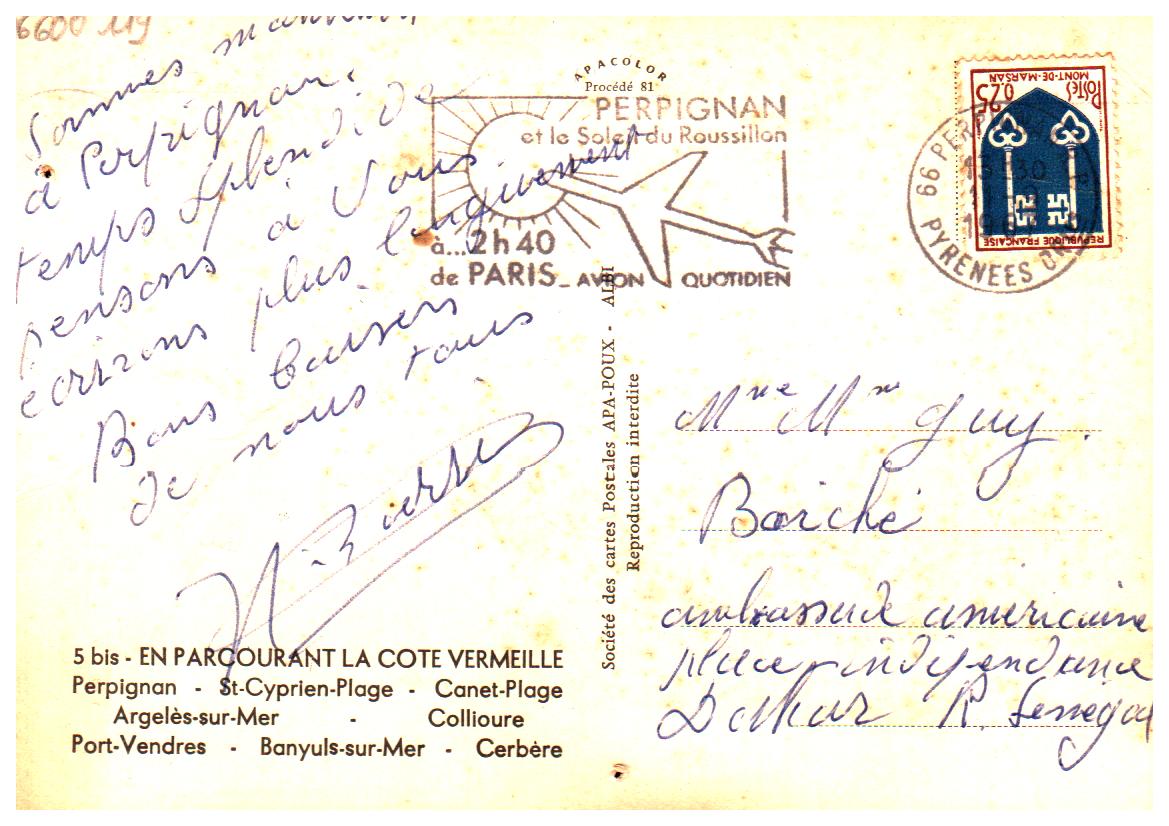 6600 119
Sommes
à Perpignan.
temps splendide
pensons à Vous
écrirons plus longuement
Bons baisers
de nous tous
APACOLOR
Procédé 81
PERPIGNAN
et le Soleil du Roussillon
à...2h40
de PARIS - AVION QUOTIDIEN
POSTES
0,25
MONT-DE-MARSAN
REPUBLIQUE FRANÇAISE
66 PERPIGNAN
13 30
PYRENEES OR
Société des cartes Postales APA-POUX - ALBI
Reproduction interdite
Mme Mr Guy.
Boriché
ambassade américaine
place indépendance
Dakar R. Senegal
5 bis - EN PARCOURANT LA COTE VERMEILLE
Perpignan - St-Cyprien-Plage - Canet-Plage
Argelès-sur-Mer - Collioure
Port-Vendres - Banyuls-sur-Mer - Cerbère